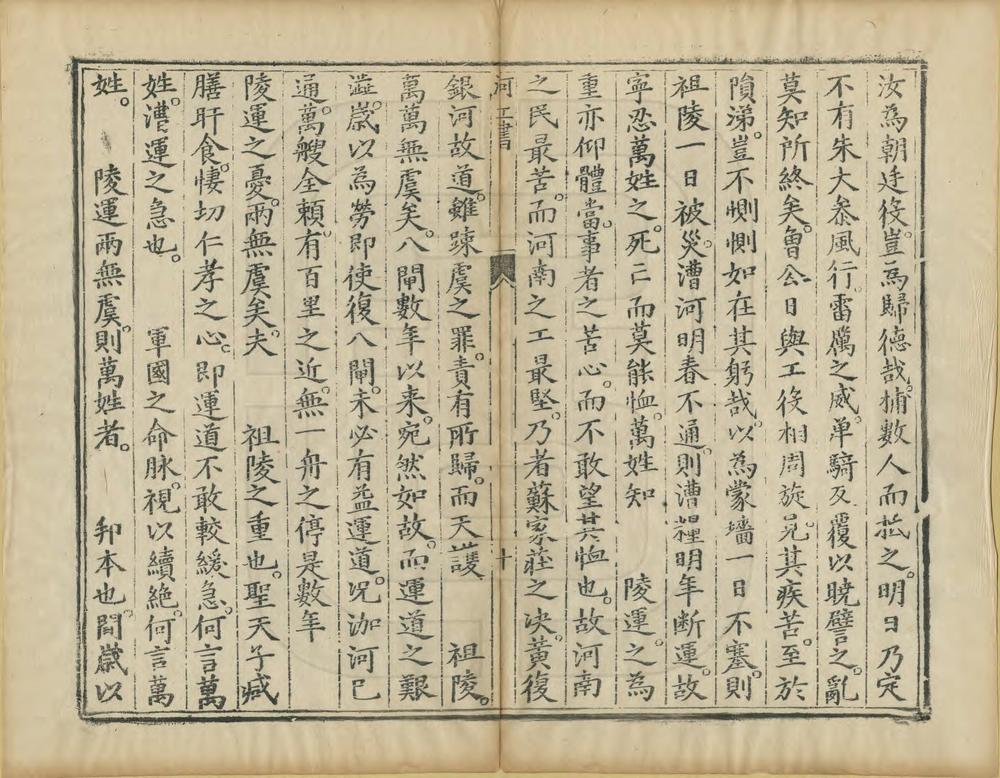 汝為朝廷役豈為歸德哉捕數人而抵之明日乃定
不有朱大叅風行雷厲之威单騎反覆以曉譬之亂
莫知所終矣魯公日與工役相周旋見其疾苦至於
隕涕豈不惻惻如在其躬哉以為蒙墻一日不塞則
祖陵一日被災漕河明春不通則漕粮明年断運故
寧忍萬姓之死亡而莫能恤萬姓知　陵運之為
重亦仰體當事者之苦心而不敢望其恤也故河南
之民最苦而河南之工最堅乃者蘇家莊之决黃復
河工書　十
銀河故道雖踈虞之罪責有所歸而天護　祖陵
萬萬無虞矣八閘數年以来宛然如故而運道之艱
澁歲以為勞即使復八閘未必有益運道况泇河已
通萬艘全頼有百里之近無一舟之停是數年
陵運之憂兩無虞矣夫　祖陵之重也聖天子减
膳旰食悽切仁孝之心即運道不敢較緩急何言萬
姓漕運之急也　軍國之命脉視以續絶何言萬
姓　陵運兩無虞則萬姓者　邦本也間歲以